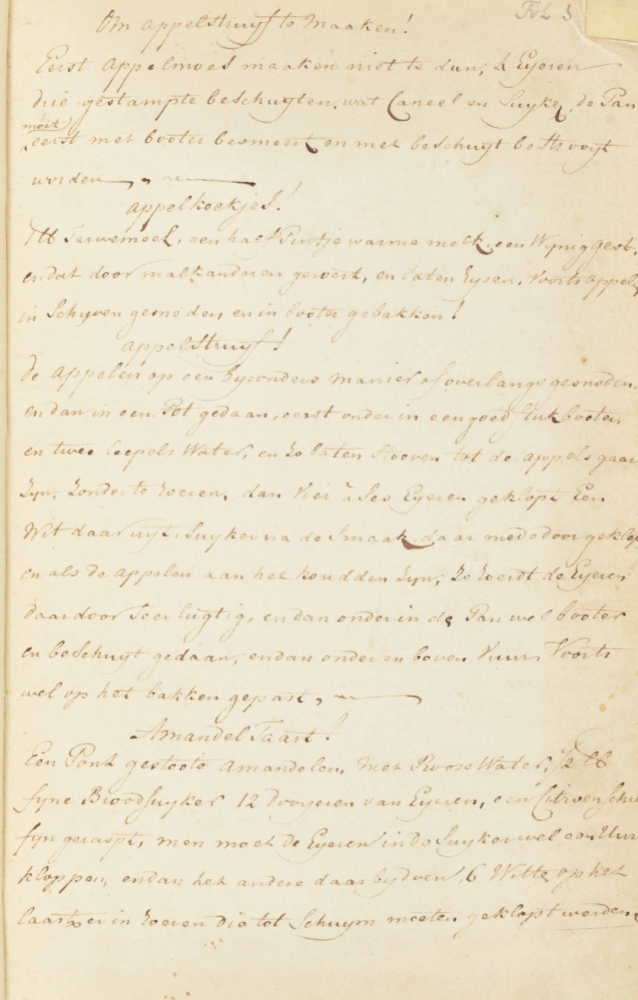 Fol 3
Om appelstruyf te maaken!
Eerst appelmoes maaken niet te dun, 4 Eyeren
drie gestampte beschuyten, wat Caneel en Suyker, de Pan
moet
eerst met booter besmeert en met beschuyt bestrooyt
worden
appelkoekjes!
1 lb Tarwemeel, een half Pintje warme melk, een Wynig gest,
en dat door malkanderen geroert, en laten Rysen, Voorts appels
in Schyven gesneden en in booter gebakken!
appelstruyf!
De appelen op een bysondere manier of overlangs gesneden,
en dan in een Pot gedaan, eerst onder in een goed stuk booter
en twee leepels Water, en zo laten Stooven tot de appels gaar
Zyn, Zonder te roeren, dan Vier à Ses Eyeren geklopt Een
Wit daar uyt, Suyker na de Smaak daar mede door geklop
en als de appelen aan het koudden Zyn, Zo Roerdt de Eyeren
daar door Seer lugtig, en dan onder in de Pan wel booter
en beschuyt gedaan, en dan onder en boven Vuur, Voorts
wel op het bakken gepast,
Amandel Taart!
Een Pont gestoote amandelen, met Roose Water, lb
fyne Broodsuyker 12 dooyeren van Eyeren, een Citroen Schil
fyn geraspt, men moet de Eyeren in de Suyker wel een Uur
kloppen, en dan het andere daar by doen, 6 Witte op het
laatst er in roeren die tot Schuym moeten geklopt werden,